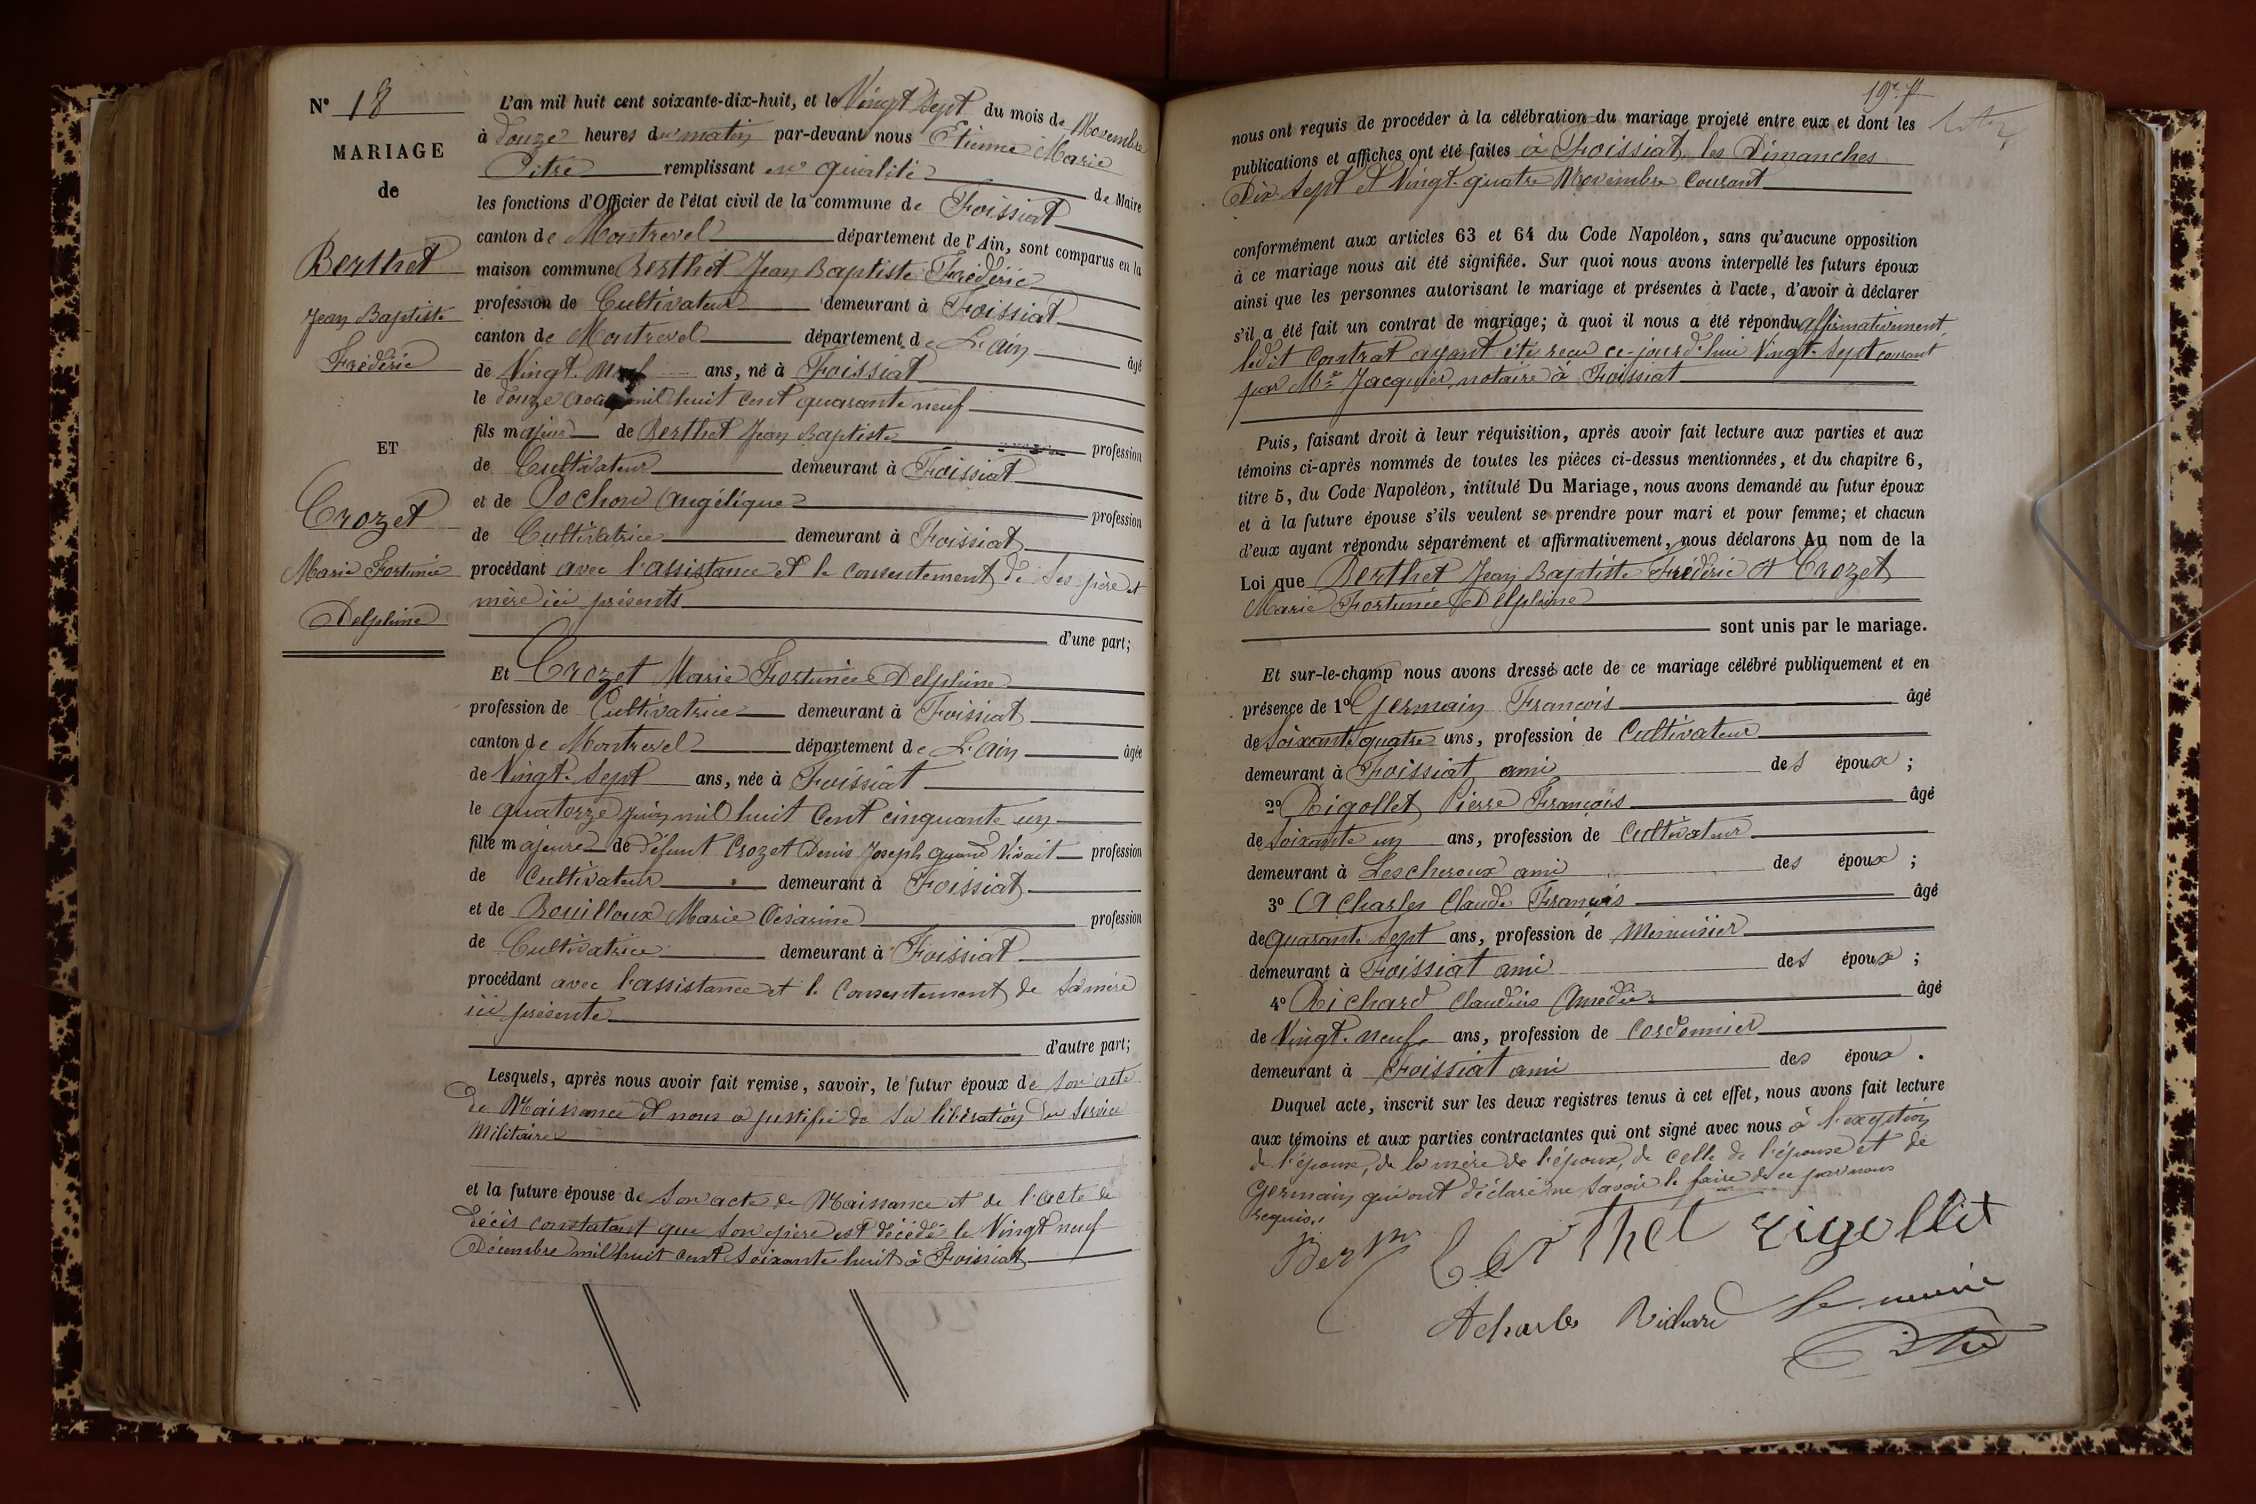 N° 18
MARIAGE
de
Berthet
Jean Baptiste
Frédéric
ET
Crozet
Marie Fortunée
Delphine
L'an mil huit cent soixante-dix-huit, et le Vingt Sept du mois de Novembre
à douze heures du matin par-devant nous Etienne Marie
Pitre remplissant en qualité de Maire
les fonctions d'Officier de l'état civil de la commune de Foissiat
canton de Montrevel département de l'Ain, sont comparus en la
maison commune Berthet Jean Baptiste Frédéric
profession de Cultivateur demeurant à Foissiat
canton de Montrevel département de L'ain âgé
de Vingt neuf ans, né à Foissiat
le douze août mil huit cent quarante neuf
fils majeur de Berthet Jean Baptiste profession
de Cultivateur demeurant à Foissiat
et de Pochon Angélique profession
de Cultivatrice demeurant à Foissiat
procédant avec l'assistance et le consentement de ses père et
mère ici présents
d'une part;
Et Crozet Marie Fortunée Delphine
profession de Cultivatrice demeurant à Foissiat
canton de Montrevel département de L'ain âgée
de Vingt-Sept ans, née à Foissiat
le quatorze juin mil huit Cent cinquante un
fille majeure de défunt Crozet Denis Joseph quand vivait profession
de Cultivateur demeurant à Foissiat
et de Bouilloux Marie Césarine profession
de Cultivatrice demeurant à Foissiat
procédant avec l'assistance et le Consentement de sa mère
ici présente
d'autre part;
Lesquels, après nous avoir fait remise, savoir, le futur époux de son acte
de Naissance et nous a justifié de sa libération du Service
Militaire
et la future épouse de son acte de Naissance et de l'acte de
décès constatant que son père est décédé le Vingt neuf
Décembre mil huit cent soixante huit à Foissiat
19e f
nous ont requis de procéder à la célébration du mariage projeté entre eux et dont les
publications et affiches ont été faites à Foissiat les Dimanches
Dix Sept et Vingt-quatre Novembre courant
conformément aux articles 63 et 64 du Code Napoléon, sans qu'aucune opposition
à ce mariage nous ait été signifiée. Sur quoi nous avons interpellé les futurs époux
ainsi que les personnes autorisant le mariage et présentes à l'acte, d'avoir à déclarer
s'il a été fait un contrat de mariage; à quoi il nous a été répondu affirmativement,
ledit contrat ayant été reçu ce-jourd'hui Vingt-Sept courant
par Me Jacquier, notaire à Foissiat
Puis, faisant droit à leur réquisition, après avoir fait lecture aux parties et aux
témoins ci-après nommés de toutes les pièces ci-dessus mentionnées, et du chapitre 6,
titre 5, du Code Napoléon, intitulé Du Mariage, nous avons demandé au futur époux
et à la future épouse s'ils veulent se prendre pour mari et pour femme; et chacun
d'eux ayant répondu séparément et affirmativement, nous déclarons Au nom de la
Loi que Berthet Jean Baptiste Frédéric et Crozet
Marie Fortunée Delphine
sont unis par le mariage.
Et sur-le-champ nous avons dressé acte de ce mariage célébré publiquement et en
présence de 1° Germain François âgé
de Soixante quatre ans, profession de Cultivateur
demeurant à Foissiat ami des époux;
2° Rigollet Pierre François âgé
de Soixante un ans, profession de Cultivateur
demeurant à Lescheroux ami des époux;
3° Acharles Claude François âgé
de quarante Sept ans, profession de Menuisier
demeurant à Foissiat ami des époux;
4° Richard Claudius Amédée âgé
de Vingt-neuf ans, profession de Cordonnier
demeurant à Foissiat ami des époux.
Duquel acte, inscrit sur les deux registres tenus à cet effet, nous avons fait lecture
aux témoins et aux parties contractantes qui ont signé avec nous à l'exception
de l'épouse, de la mère de l'époux, de celle de l'épouse et de
Germain qui ont déclaré ne savoir le faire de ce par nous
requis.
Berthet Rigollet
Acharles Richard Le maire
Pitre